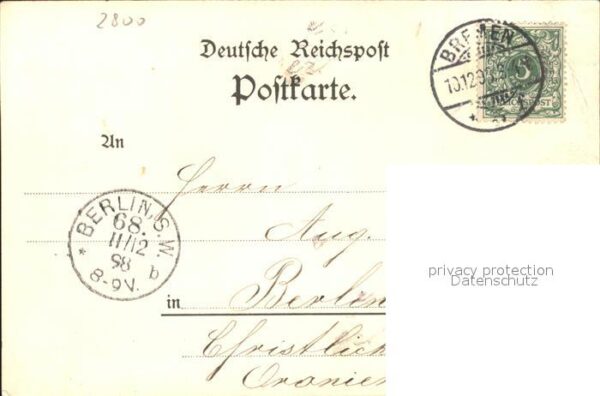 2800
Deutsche Reichspost
Postkarte.
BREMEN
10.12.98
An
Herrn
Aug.
BERLIN, S.W.
68.
11/12
98
b
8-9V.
in Berlin
Christlich
Oranien
privacy protection
Datenschutz